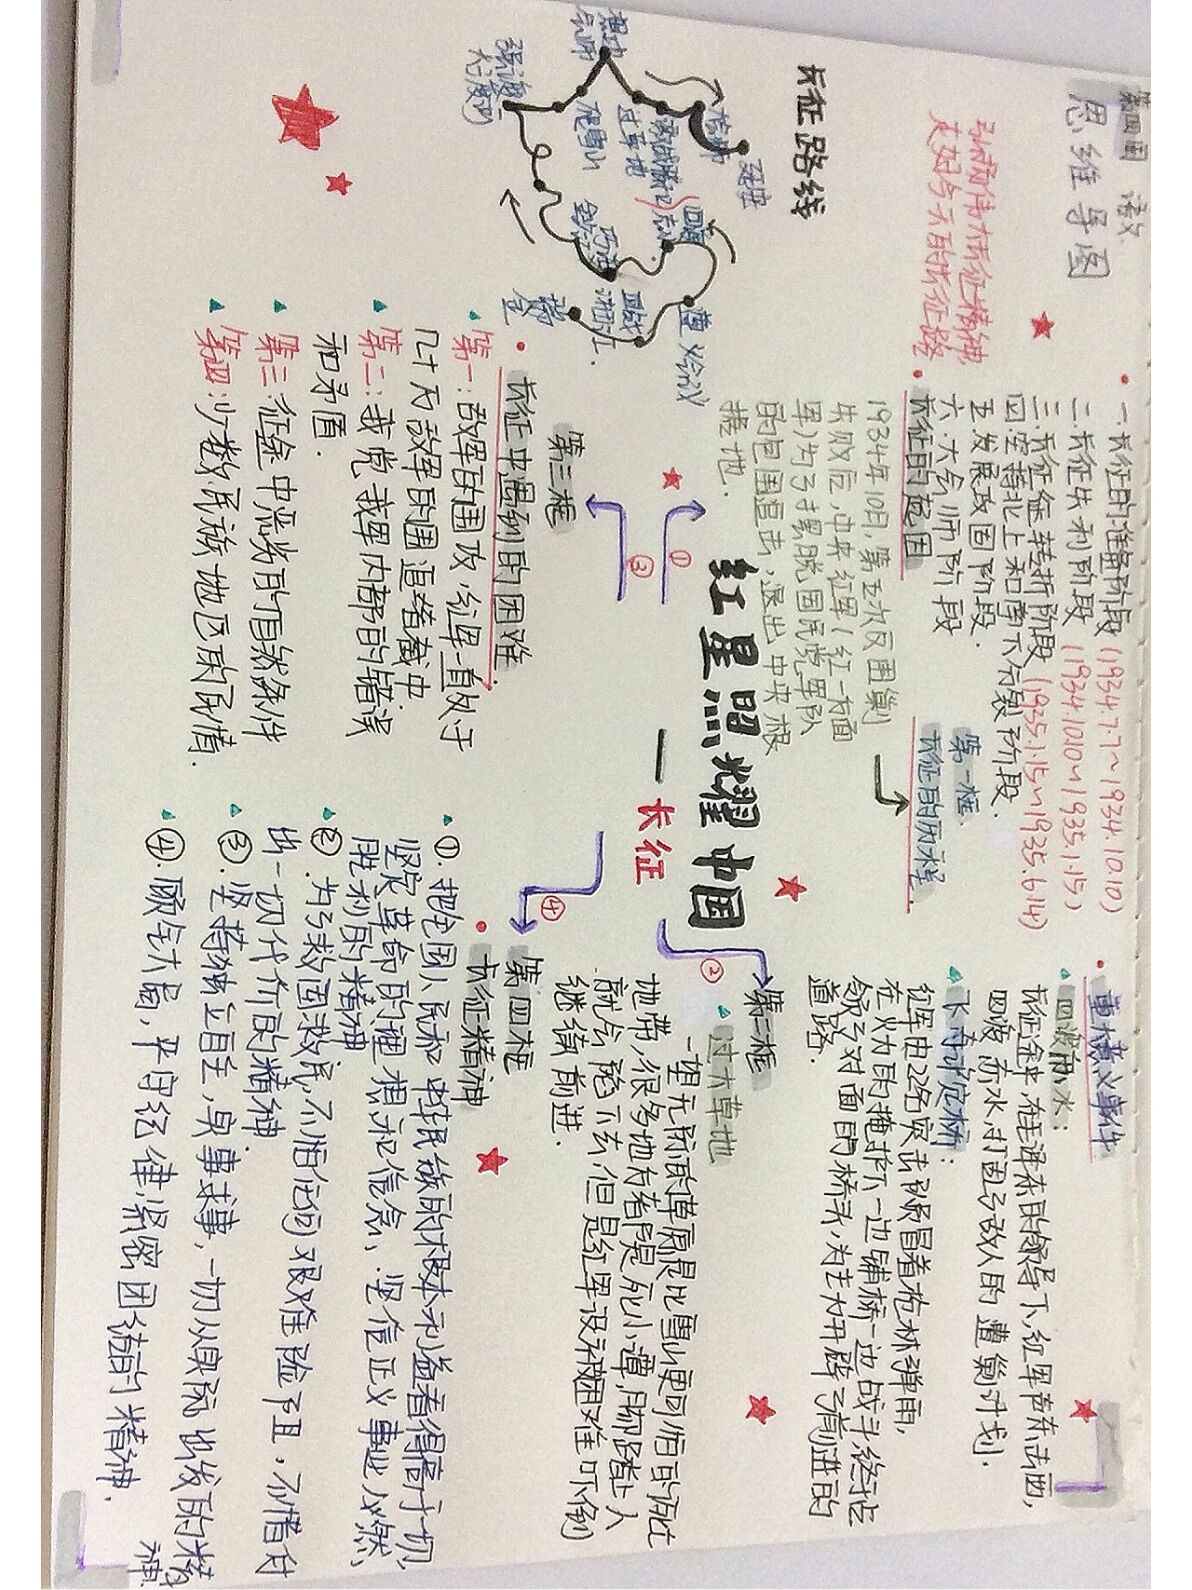 第四周 语文
思维导图
弘扬伟大长征精神
走好今天的长征路
一.长征的准备阶段(1934.7.7~1934.10.10)
二.长征失利阶段(1934.10.10~1935.1.15)
三.长征途转折阶段(1935.1.15~1935.6.14)
四.坚持北上和南下分裂阶段.
五发展巩固阶段.
六.大会师阶段
第一框.
长征的历程.
长征的原因
1934年10月,第五次反围剿
失败后,中央红军(红一方面
军)为了摆脱国民党军队
的包围追击,退出中央根
据地.
重大意义事件
四渡赤水:
在泽东的领导下,红军声东击西,
四渡赤水,打围了敌人的遭剿计划.
飞夺泸定桥:
红军由22名突击队员冒着枪林弹雨,
在火力的掩护下一边铺桥一边战斗,终于占
领了对面的桥头,为主力开辟了前进的
道路.
长征路线
延安
会师
过草地
爬雪山
懋功
会师
强渡
大渡河
巧渡
四渡
遵义会议
血战
湘江.
瑞金
红星照耀中国
— 长征
① ② ③ ④
第二框
过大草地
一望无际的草原是比雪山更可怕的沥过
地带,很多地方看都是死小潭,脚踏上人
就会陷下去,但是红军没有被困难吓倒
继续前进.
第三框
长征中遇到的困难.
第一:敌军的围攻,红军一直处于
几十万敌军的围追堵截中
第二:我党我军内部的错误
和矛盾.
第三:征途中恶劣的自然条件
第四:少数民族地区的民情.
第四框
长征精神
①.把全国人民和中华民族的根本利益看得高于一切,
坚定革命的理想和信念,坚信正义事业必然
胜利的精神
②.为了救国救民,不怕任何艰难险阻,不惜付
出一切代价的精神
③.坚持独立自主,实事求事,一切从实际出发的精
神
④.顾全大局,严守纪律,紧密团结的精神.